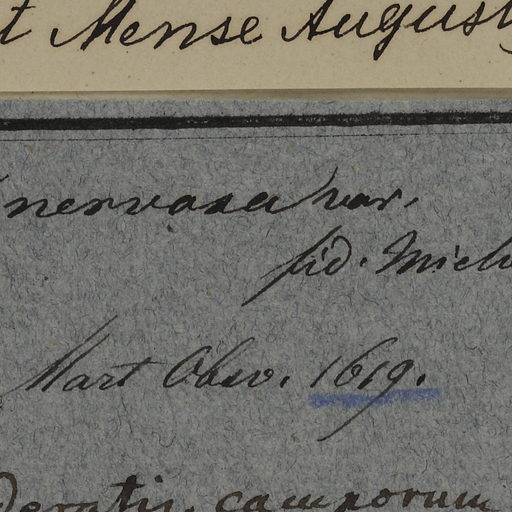 t Mense August
nervosa var.
fid. Mich
Mart Obsv. 1619.
deratis. camporum